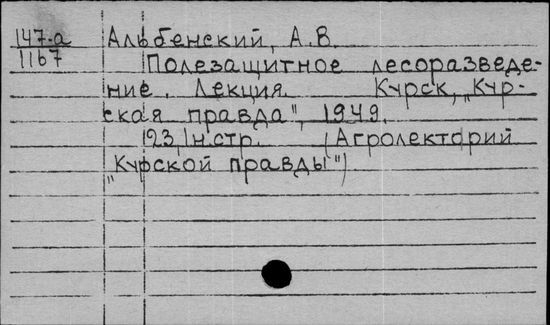 147-а Альбенский, А.В.
1167 Полезащитное лесоразведе-
ние. Лекция. Курск, „Кур-
ская правда", 1949.
23, 1 н.стр. (Агролекторий
„Курской правды")